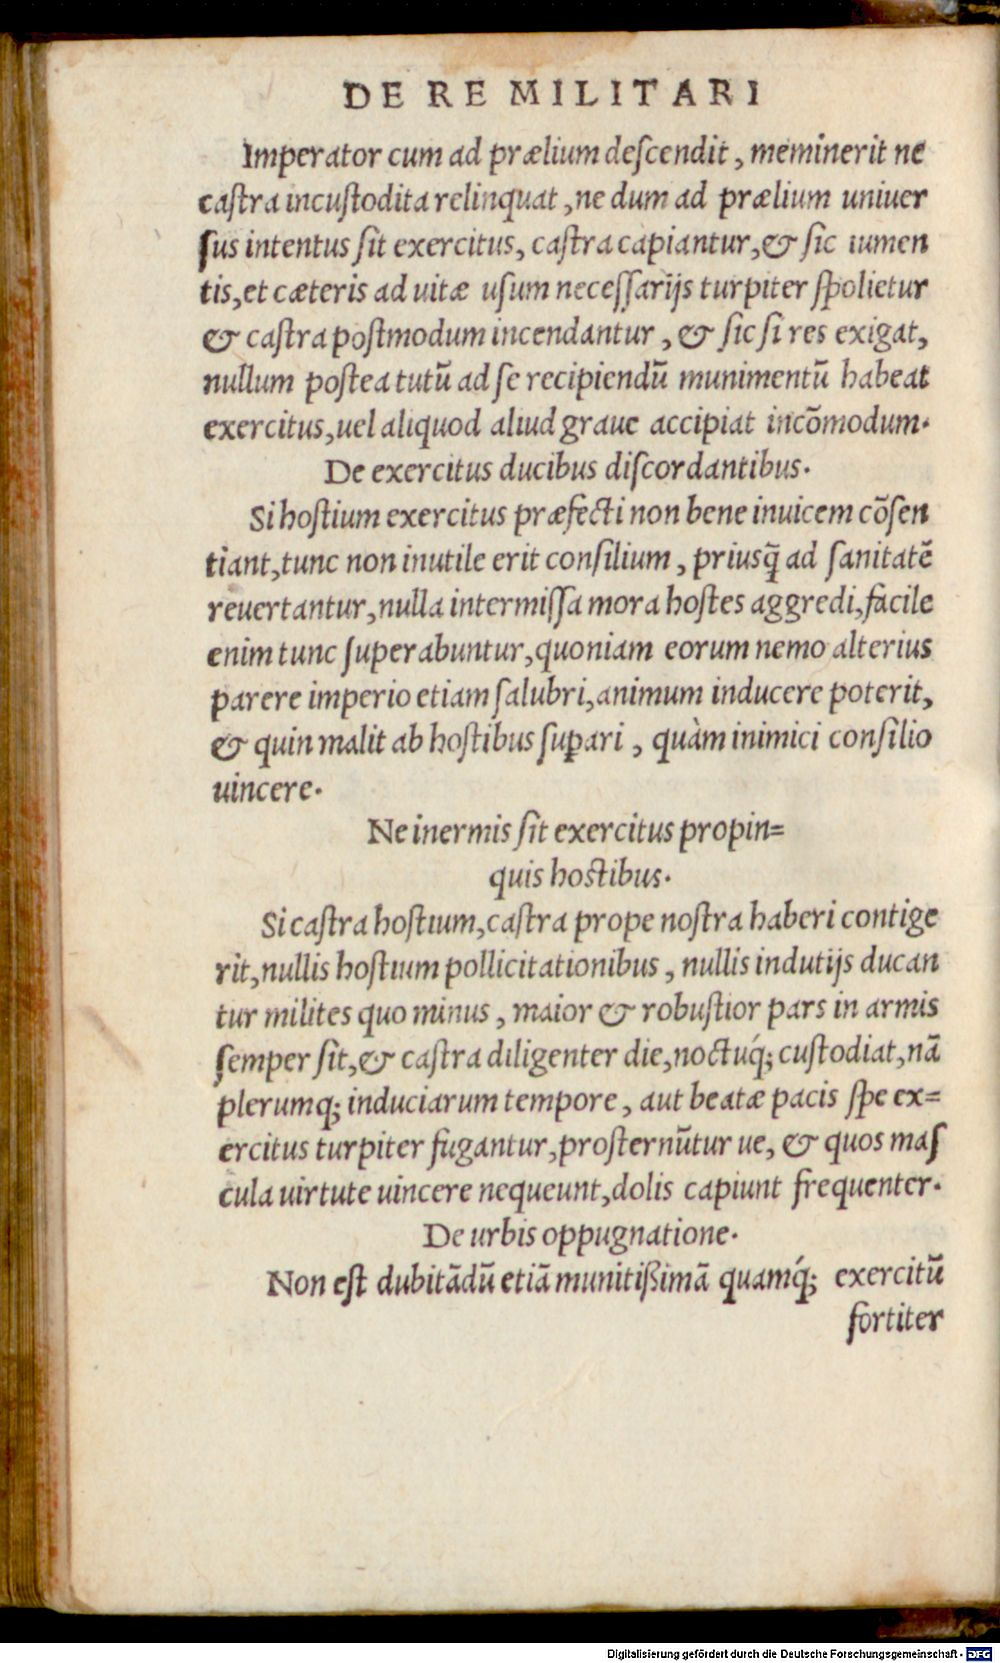 DE RE MILITARI
Imperator cum ad prælium deſcendit, meminerit ne
caſtra incuſtodita relinquat, ne dum ad prælium uniuer
ſus intentus ſit exercitus, caſtra capiantur, & ſic iumen
tis, et cæteris ad uitæ uſum neceſſarijs turpiter ſpolietur
& caſtra poſtmodum incendantur, & ſic ſi res exigat,
nullum poſtea tutū ad ſe recipiendū munimentū habeat
exercitus, uel aliquod aliud graue accipiat incōmodum.
De exercitus ducibus diſcordantibus.
Si hoſtium exercitus præfecti non bene inuicem cōſen
tiant, tunc non inutile erit conſilium, priusq̄ ad ſanitatē
reuertantur, nulla intermiſſa mora hoſtes aggredi, facile
enim tunc ſuperabuntur, quoniam eorum nemo alterius
parere imperio etiam ſalubri, animum inducere poterit,
& quin malit ab hoſtibus ſuꝑari, quàm inimici conſilio
uincere.
Ne inermis ſit exercitus propin=
quis hoſtibus.
Si caſtra hoſtium, caſtra prope noſtra haberi contige
rit, nullis hoſtium pollicitationibus, nullis indutijs ducan
tur milites quo minus, maior & robuſtior pars in armis
ſemper ſit, & caſtra diligenter die, noctuq́; cuſtodiat, nā
plerumq; induciarum tempore, aut beatæ pacis ſpe ex=
ercitus turpiter fugantur, proſternūtur ue, & quos maſ
cula uirtute uincere nequeunt, dolis capiunt frequenter.
De urbis oppugnatione.
Non eſt dubitādū etiā munitißimā quamq́; exercitū
fortiter
Digitalisierung gefördert durch die Deutsche Forschungsgemeinschaft - DFG